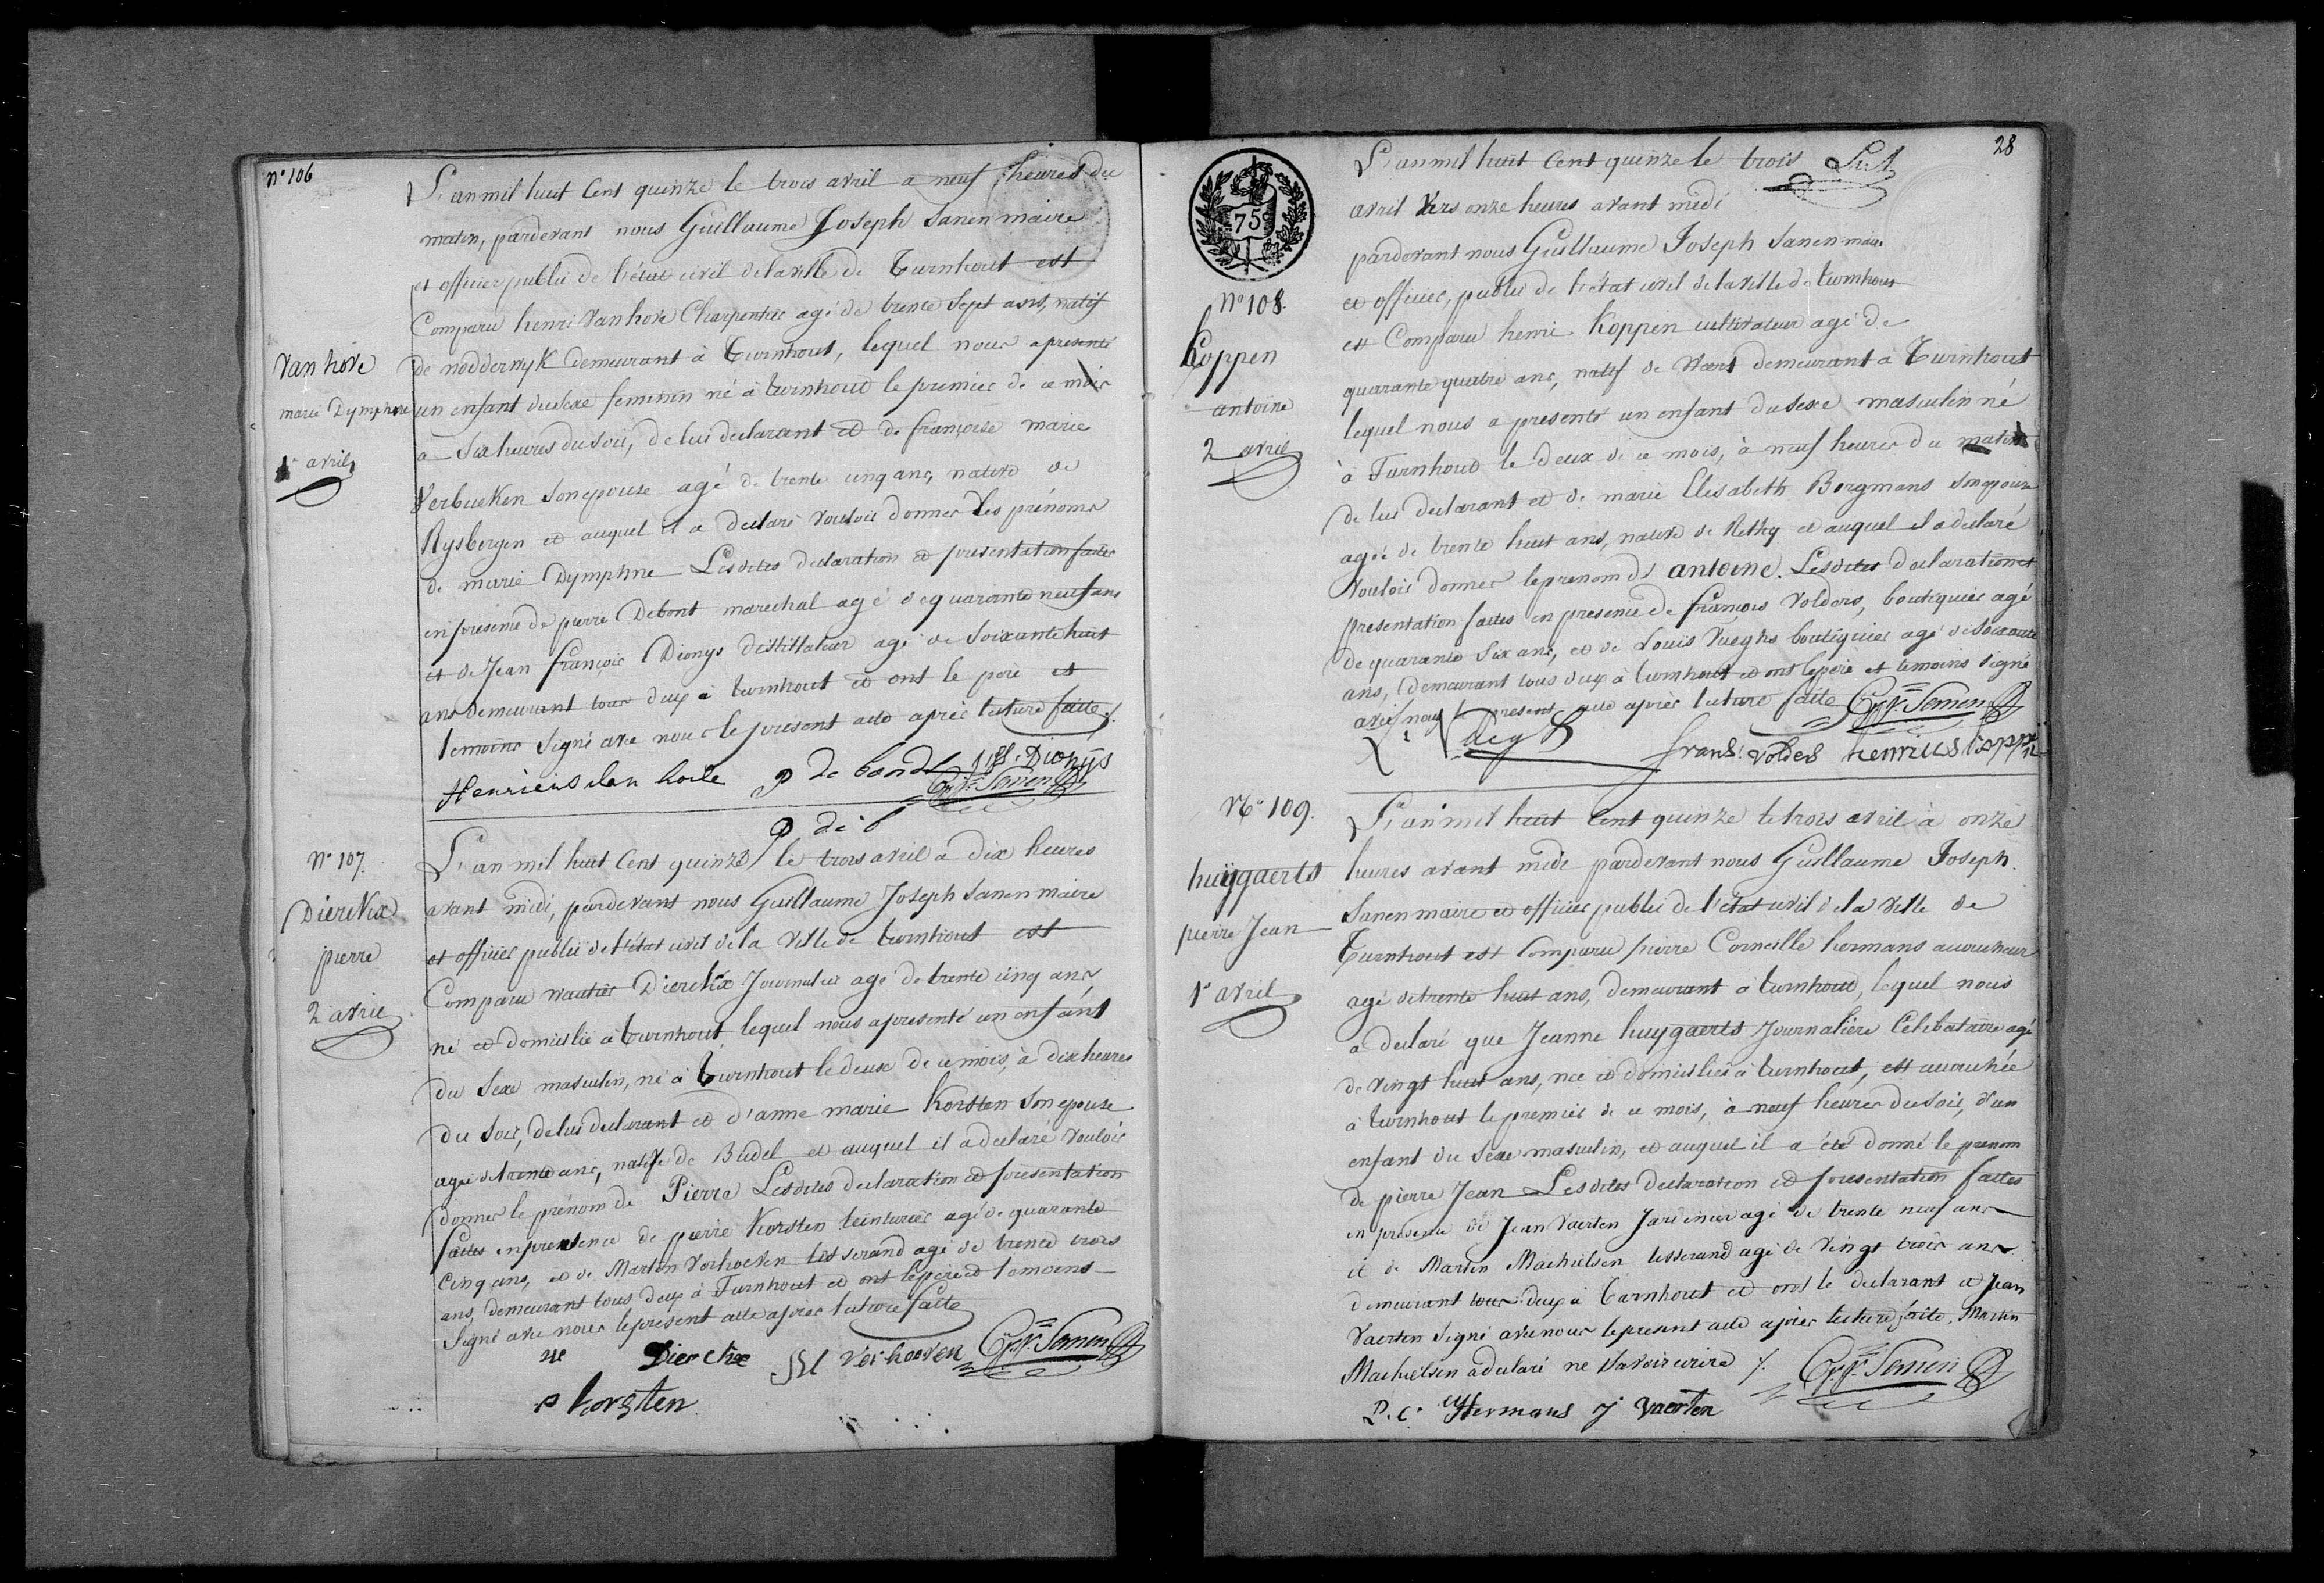 n° 106
L'an mil huit Cent quinze le trois avril a neuf heures du
matin, pardevant nous Guillaume Joseph Sanen maire
et officier public de l'état civil de la ville de Turnhout est
Comparu henri Vanhove Charpentier agé de trente Sept ans, natif
de nodderwyk demeurant à Turnhout, lequel nous a presenté
un enfant du sexe feminin né à turnhout le premier de ce mois
à Six heures du soir, de lui declarant et de françoise marie
Verbueken son epouse agé de trente cinq ans, native de
Rysbergen et auquel il a declaré vouloir donner les prénoms
de marie Dymphne Lesdites declaration et presentation faites
en presence de pierre Debont marechal agé de quarante neuf ans
et de Jean françois Dionys distillateur agé de Soixante huit
ans demeurant tous deux à turnhout et ont le pere et
temoins signé avec nous le present acte après lecture faite ./.
Van hove
marie Dymphne
1r avril
Henricus van hove p de bondt j.f. Dionÿs
G.J. Sanen
p de b
n° 107.
Dierckx
pierre
2 avril
L'an mil huit Cent quinze le trois avril a dix heures
avant midi, pardevant nous Guillaume Joseph Sanen maire
et officier public de l'état civil de la ville de turnhout est
Comparu wautier Dierckx Journalier agé de trente cinq ans,
né et domicilié à turnhout, lequel nous a presenté un enfant
du Sexe masculin, né à Turnhout le deux de ce mois, à dix heures
du soir, de lui declarant et d'anne marie Korsten son epouse
agée de trente ans, native de Budel et auquel il a declaré vouloir
donner le prénom de Pierre Lesdites declaration et presentation
faites en presence de pierre Korsten teinturier agé de quarante
Cinq ans, et de Martin Verhoeven tisserand agé de trente trois
ans, demeurant tous deux à Turnhout et ont le pere et temoins
Signé avec nous le present acte après lecture faite
Dierckx M Verhoeven G.J. Sanen
p korsten
28
75
N° 108.
Koppen
antoine
2 avril
L'an mil huit Cent quinze le trois
avril vers onze heures avant midi
pardevant nous Guillaume Joseph Sanen maire
et officier, public de l'état civil de la ville de turnhout
est Comparu henri Koppen cultivateur agé de
quarante quatre ans, natif de Weert demeurant à Turnhout
lequel nous a presenté un enfant du sexe masculin né
à Turnhout le deux de ce mois, à neuf heures du matin
de lui declarant et de marie Elisabeth Borgmans son epouse
agée de trente huit ans, native de Rethy et auquel il a declaré
vouloir donner le prenom de antoine. Lesdites declaration et
presentation faites en presence de françois Volders, boutiquier agé
de quarante Six ans, et de Louis Vueghs boutiquier agé de soixante
ans, demeurant tous deux à turnhout et ont le pere et temoins signé
avec nous le present acte après lecture faite G.J. Sanen
frans volders henricus koppen
N° 109.
huÿgaerts
pierre Jean
1r avril
L'an mil huit Cent quinze le trois avril à onze
heures avant midi pardevant nous Guillaume Joseph
Sanen maire et officier public de l'état civil de la ville de
Turnhout est Comparu pierre Corneille hermans accoucheur
agé de trente huit ans, demeurant à turnhout, lequel nous
a declaré que Jeanne huÿgaerts Journalière Celibataire agé
de vingt huit ans, née et domiciliée à turnhout, est accouchée
à turnhout le premier de ce mois, à neuf heures du soir, d'un
enfant du Sexe masculin, et auquel il a été donné le prenom
de pierre Jean Lesdites declaration et presentation faites
en presence de Jean Vaerten Jardinier agé de trente neuf ans
et de Martin Machielsen tisserand agé de vingt trois ans
demeurant tous deux à Turnhout et ont le declarant et Jean
Vaerten signé avec nous le present acte après lecture faite, Martin
Machielsen a declaré ne savoir ecrire ./. G.J. Sanen
P. C. Hermans J vaerten